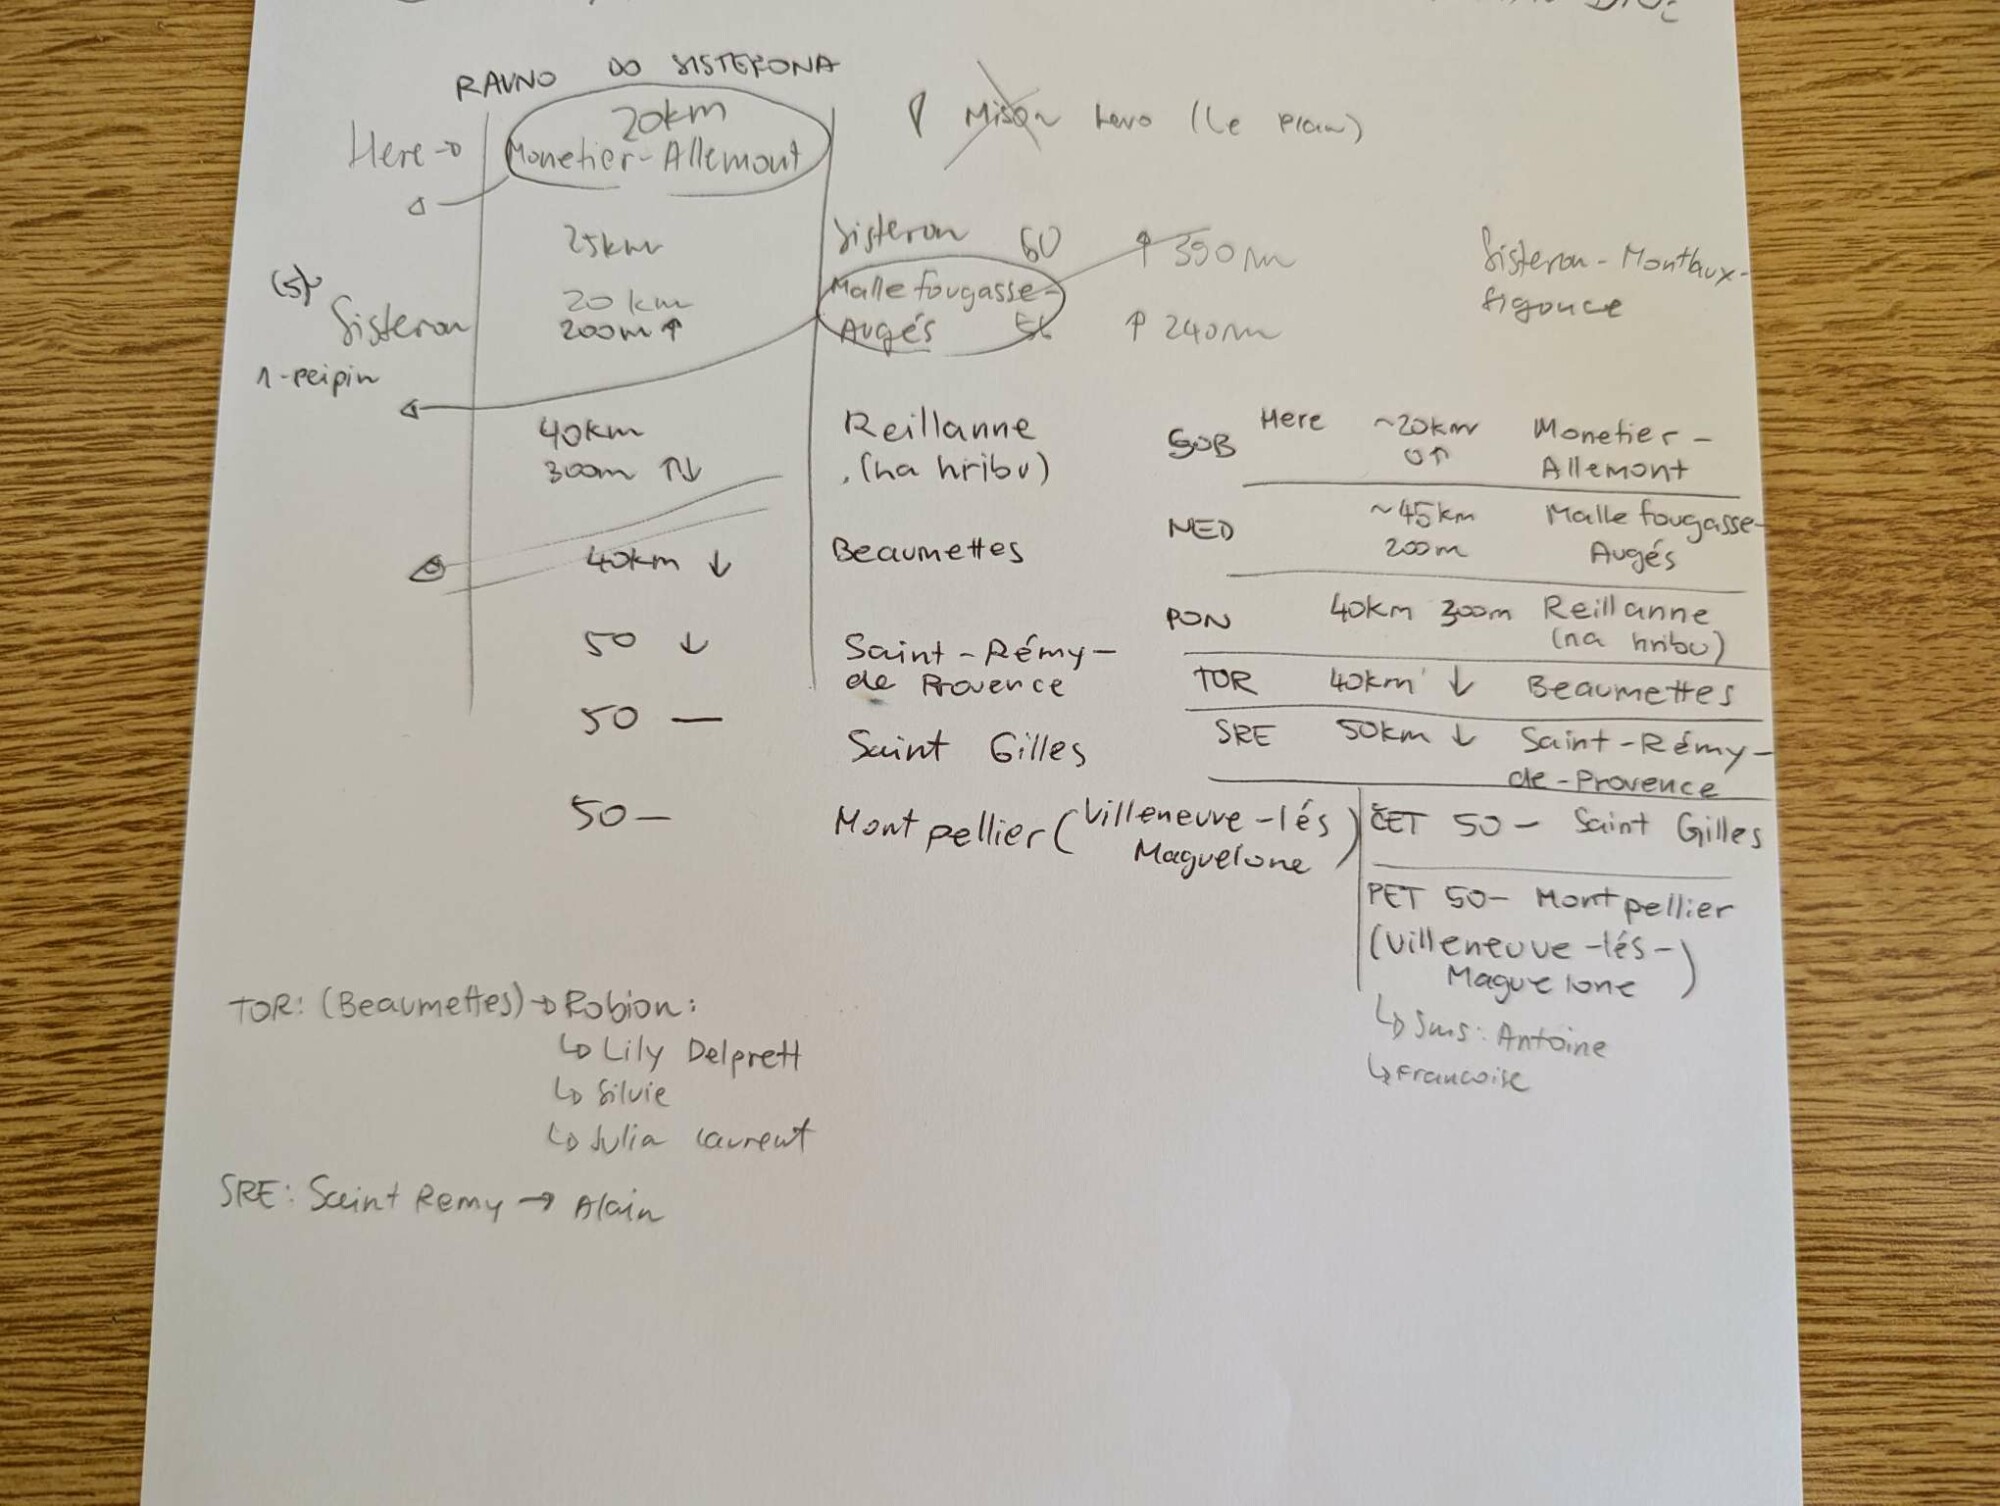 RAVNO DO SISTERONA
Here → 20km
Monetier-Allemont
Mison levo (Le Plan)
25km Sisteron 60 ↑ 390m
Sisteron - Montlaux-
Sigonce
(5)
Sisteron 20km
200m ↑
Malle fougasse-
Augés ↑ 240m
1-peipin
40km
300m ↑↓
Reillanne
(na hribu)
40km ↓ Beaumettes
50 ↓ Saint-Rémy-
de Provence
50 — Saint Gilles
50 — Montpellier (Villeneuve-lés
Maguelone)
SOB Here ~20km Monetier-
0↑ Allemont
NED ~45km Malle fougasse-
200m Augés
PON 40km 300m Reillanne
(na hribu)
TOR 40km ↓ Beaumettes
SRE 50km ↓ Saint-Rémy-
de-Provence
ČET 50 — Saint Gilles
PET 50 — Montpellier
(Villeneuve-lés-
Maguelone)
↳ Sms: Antoine
↳ Francoise
TOR: (Beaumettes) → Robion:
↳ Lily Delprett
↳ Silvie
↳ Julia Laurent
SRE: Saint Remy → Alain